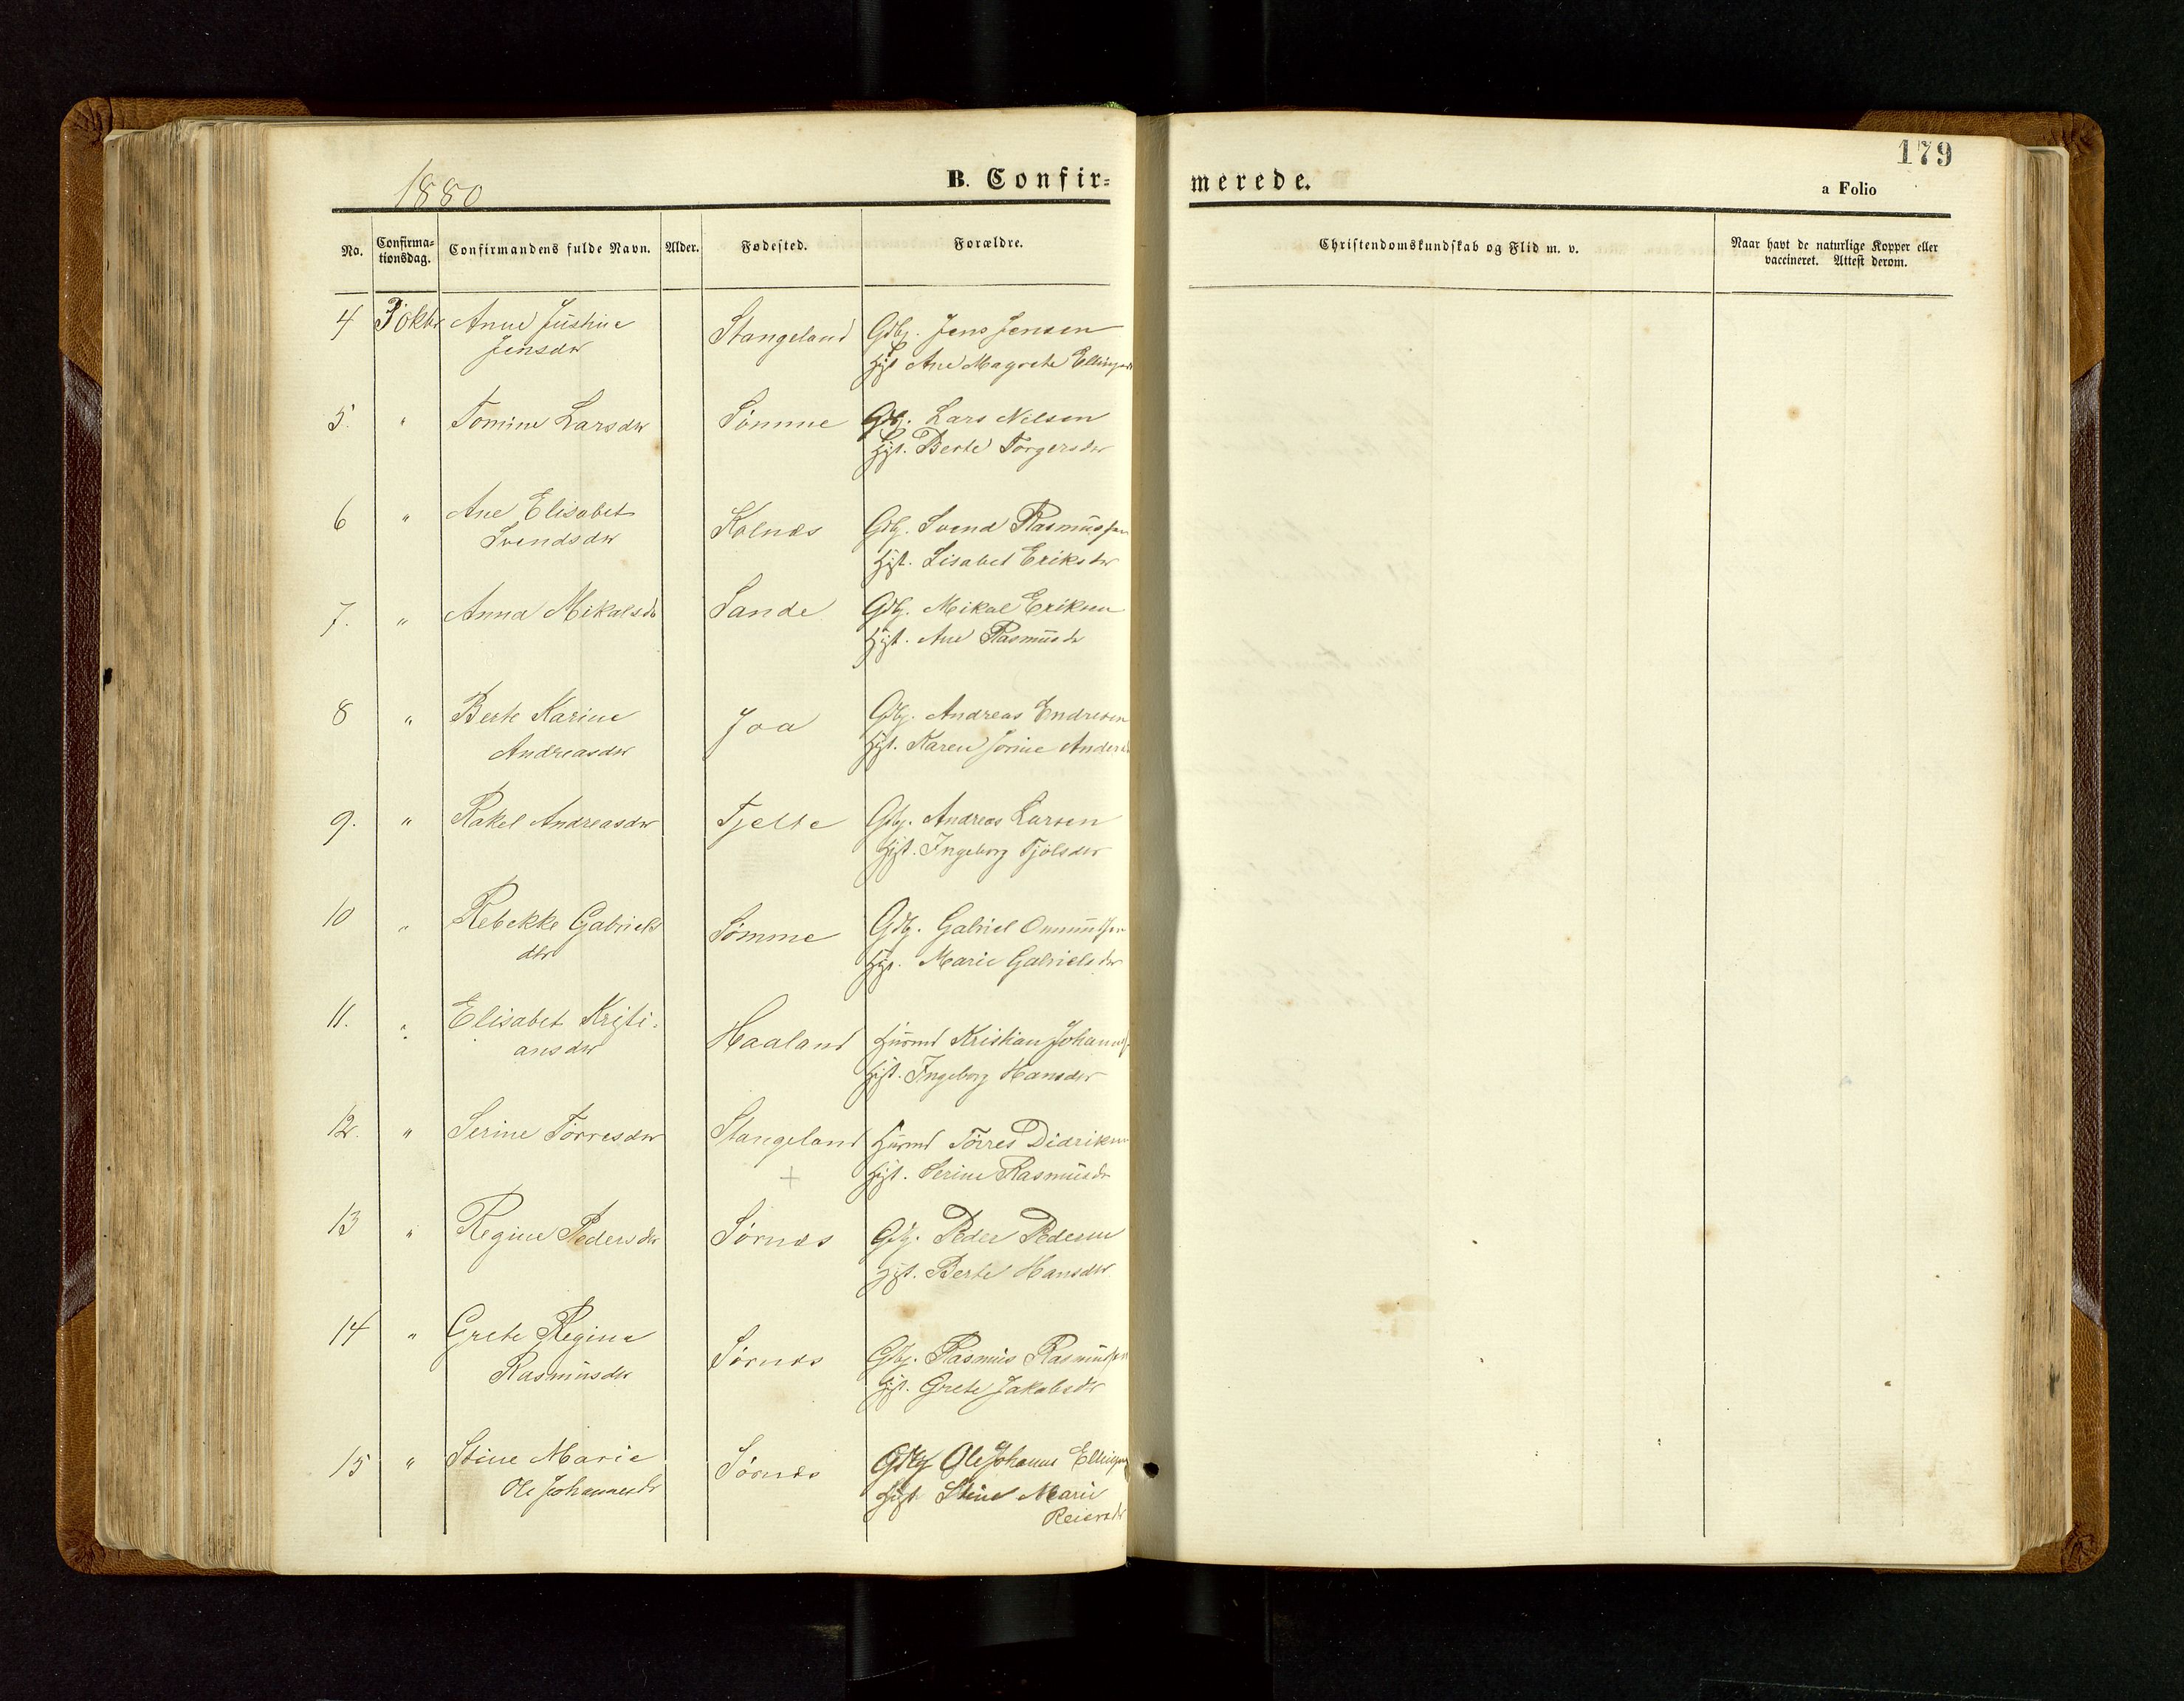 1880
B. Confir=
merede.
179
a Folio
No.
Confirma=
tionsdag.
Confirmandens fulde Navn.
Alder.
Fødested.
Forældre.
Christendomskundskab og Flid m. v.
Naar havt de naturlige Kopper eller
vaccineret. Attest derom.
4 3 Oktbr Anne Justine
Jensdtr
Stangeland
Gdbg. Jens Jensen
Hgst Ane Magrete Ellingsd
5. " Tomine Larsdtr
Sømme
Gdbg. Lars Nilsen
Hgst. Berte Torgersdtr
6 " Ane Elisabet
Svendsdtr
Kolnes
Gdbg. Svend Rasmussen
Hgst. Lisabet Eriksdtr
7. " Anna Mikalsdtr
Sande
Gdbg. Mikal Eriksen
Hgst. Ane Rasmusdr
8 " Berte Karine
Andreasdtr
Joa
Gdbg. Andreas Endresen
Hgst. Karen Jorine Andersd
9. " Rakel Andreasdtr
Tjelte
Gdbg. Andreas Larsen
Hgst. Ingeborg Tjölsdtr
10 " Rebekke Gabriels
dtr
Sømme
Gdbg. Gabriel Ommundsen
Hgst. Marie Gabrielsdtr
11. " Elisabet Kristi-
ansdtr
Haaland
Husmd Kristian Johanns
Hgst. Ingeborg Hansdtr
12. " Serine Törresdtr
Stangeland
Husmd Törres Didriksen
+
Hgst. Serine Rasmusdr
13 " Regine Pedersdtr
Sørnes
Gdbg. Peder Pedersen
Hgst. Berte Hansdtr
14 " Grete Regina
Rasmusdtr
Sørnes
Gdbg. Rasmus Rasmussen
Hgst. Grete Jakobsdtr
15 " Stine Marie
Ole Johannesdr
Sørnes
Gdbg Ole Johannes Ellings
Hgst Stine Marie
Reiersdr